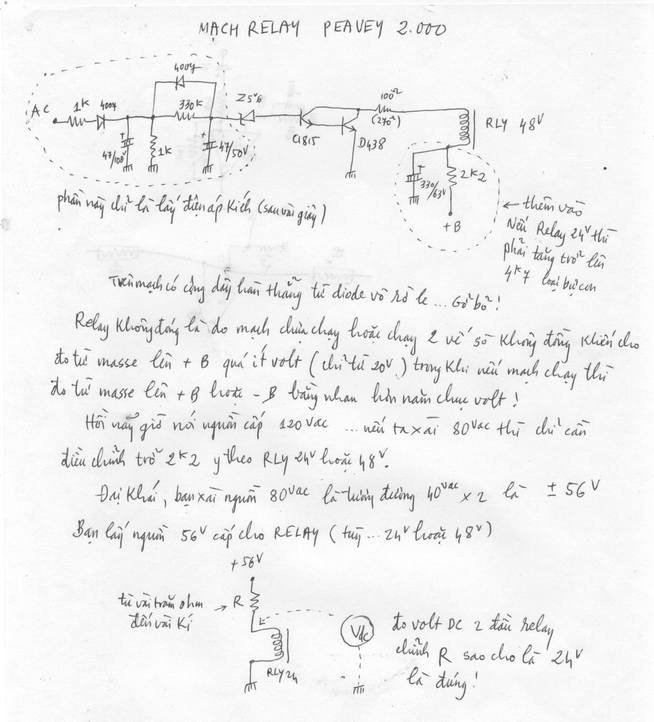 MẠCH RELAY PEAVEY 2.000
AC
1K
4007
4007
330K
47/100V
1K
47/50V
Z5V6
C1815
D438
100Ω
(270Ω)
RLY 48V
330/63V
2K2
+B
phần này chỉ là lấy điện áp kích (sau vài giây)
← thêm vào
Nếu Relay 24V thì
phải tăng trở lên
4K7 loại bự con
Trên mạch có cộng dây hàn thẳng từ diode vô rờ le ... Gỡ bỏ!
Relay không đóng là do mạch chưa chạy hoặc chạy 2 vế số không đồng khiến cho
đo từ masse lên +B quá ít volt (chỉ từ 20V) trong khi nếu mạch chạy thì
đo từ masse lên +B hoặc -B bằng nhau hơn năm chục volt!
Hồi nãy giờ nói nguồn cấp 120VAC ... nếu ta xài 80VAC thì chỉ cần
điều chỉnh trở 2K2 y theo RLY 24V hoặc 48V.
Đại khái, bạn xài nguồn 80VAC là tương đương 40VAC x 2 là ± 56V
Bạn lấy nguồn 56V cấp cho RELAY (tùy ... 24V hoặc 48V)
+56V
từ vài trăm ohm
đến vài Kí
→ R
RLY 24
Vdc
đo volt DC 2 đầu relay
chỉnh R sao cho là 24V
là đúng!